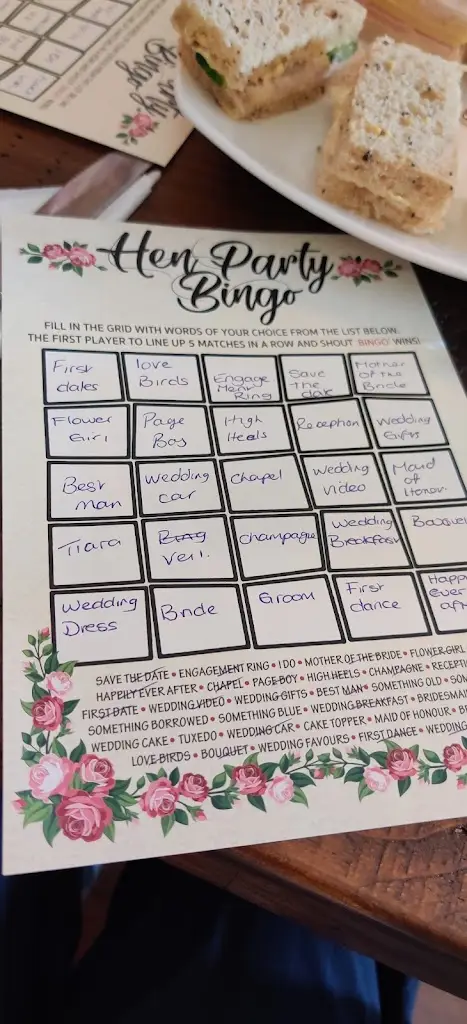 Party
Bingo
Hen Party
Bingo
FILL IN THE GRID WITH WORDS OF YOUR CHOICE FROM THE LIST BELOW.
THE FIRST PLAYER TO LINE UP 5 MATCHES IN A ROW AND SHOUT 'BINGO' WINS!
First dates
love Birds
Engage Ment Ring
Save The dat
Mother of the Bride
Flower Girl
Page Boy
High Heels
Reception
Wedding Gifts
Best man
Wedding car
Chapel
Wedding video
Maid of Honour.
Tiara
Veil.
Champagne
Wedding Breakfast
Bouquet
Wedding Dress
Bride
Groom
First dance
Happ ever aft
SAVE THE DATE • ENGAGEMENT RING • I DO • MOTHER OF THE BRIDE • FLOWER GIRL
HAPPILY EVER AFTER • CHAPEL • PAGE BOY • HIGH HEELS • CHAMPAGNE • RECEPTI
FIRST DATE • WEDDING VIDEO • WEDDING GIFTS • BEST MAN • SOMETHING OLD • SOM
SOMETHING BORROWED • SOMETHING BLUE • WEDDING BREAKFAST • BRIDESMA
WEDDING CAKE • TUXEDO • WEDDING CAR • CAKE TOPPER • MAID OF HONOUR • BR
LOVE BIRDS • BOUQUET • WEDDING FAVOURS • FIRST DANCE • WEDDING